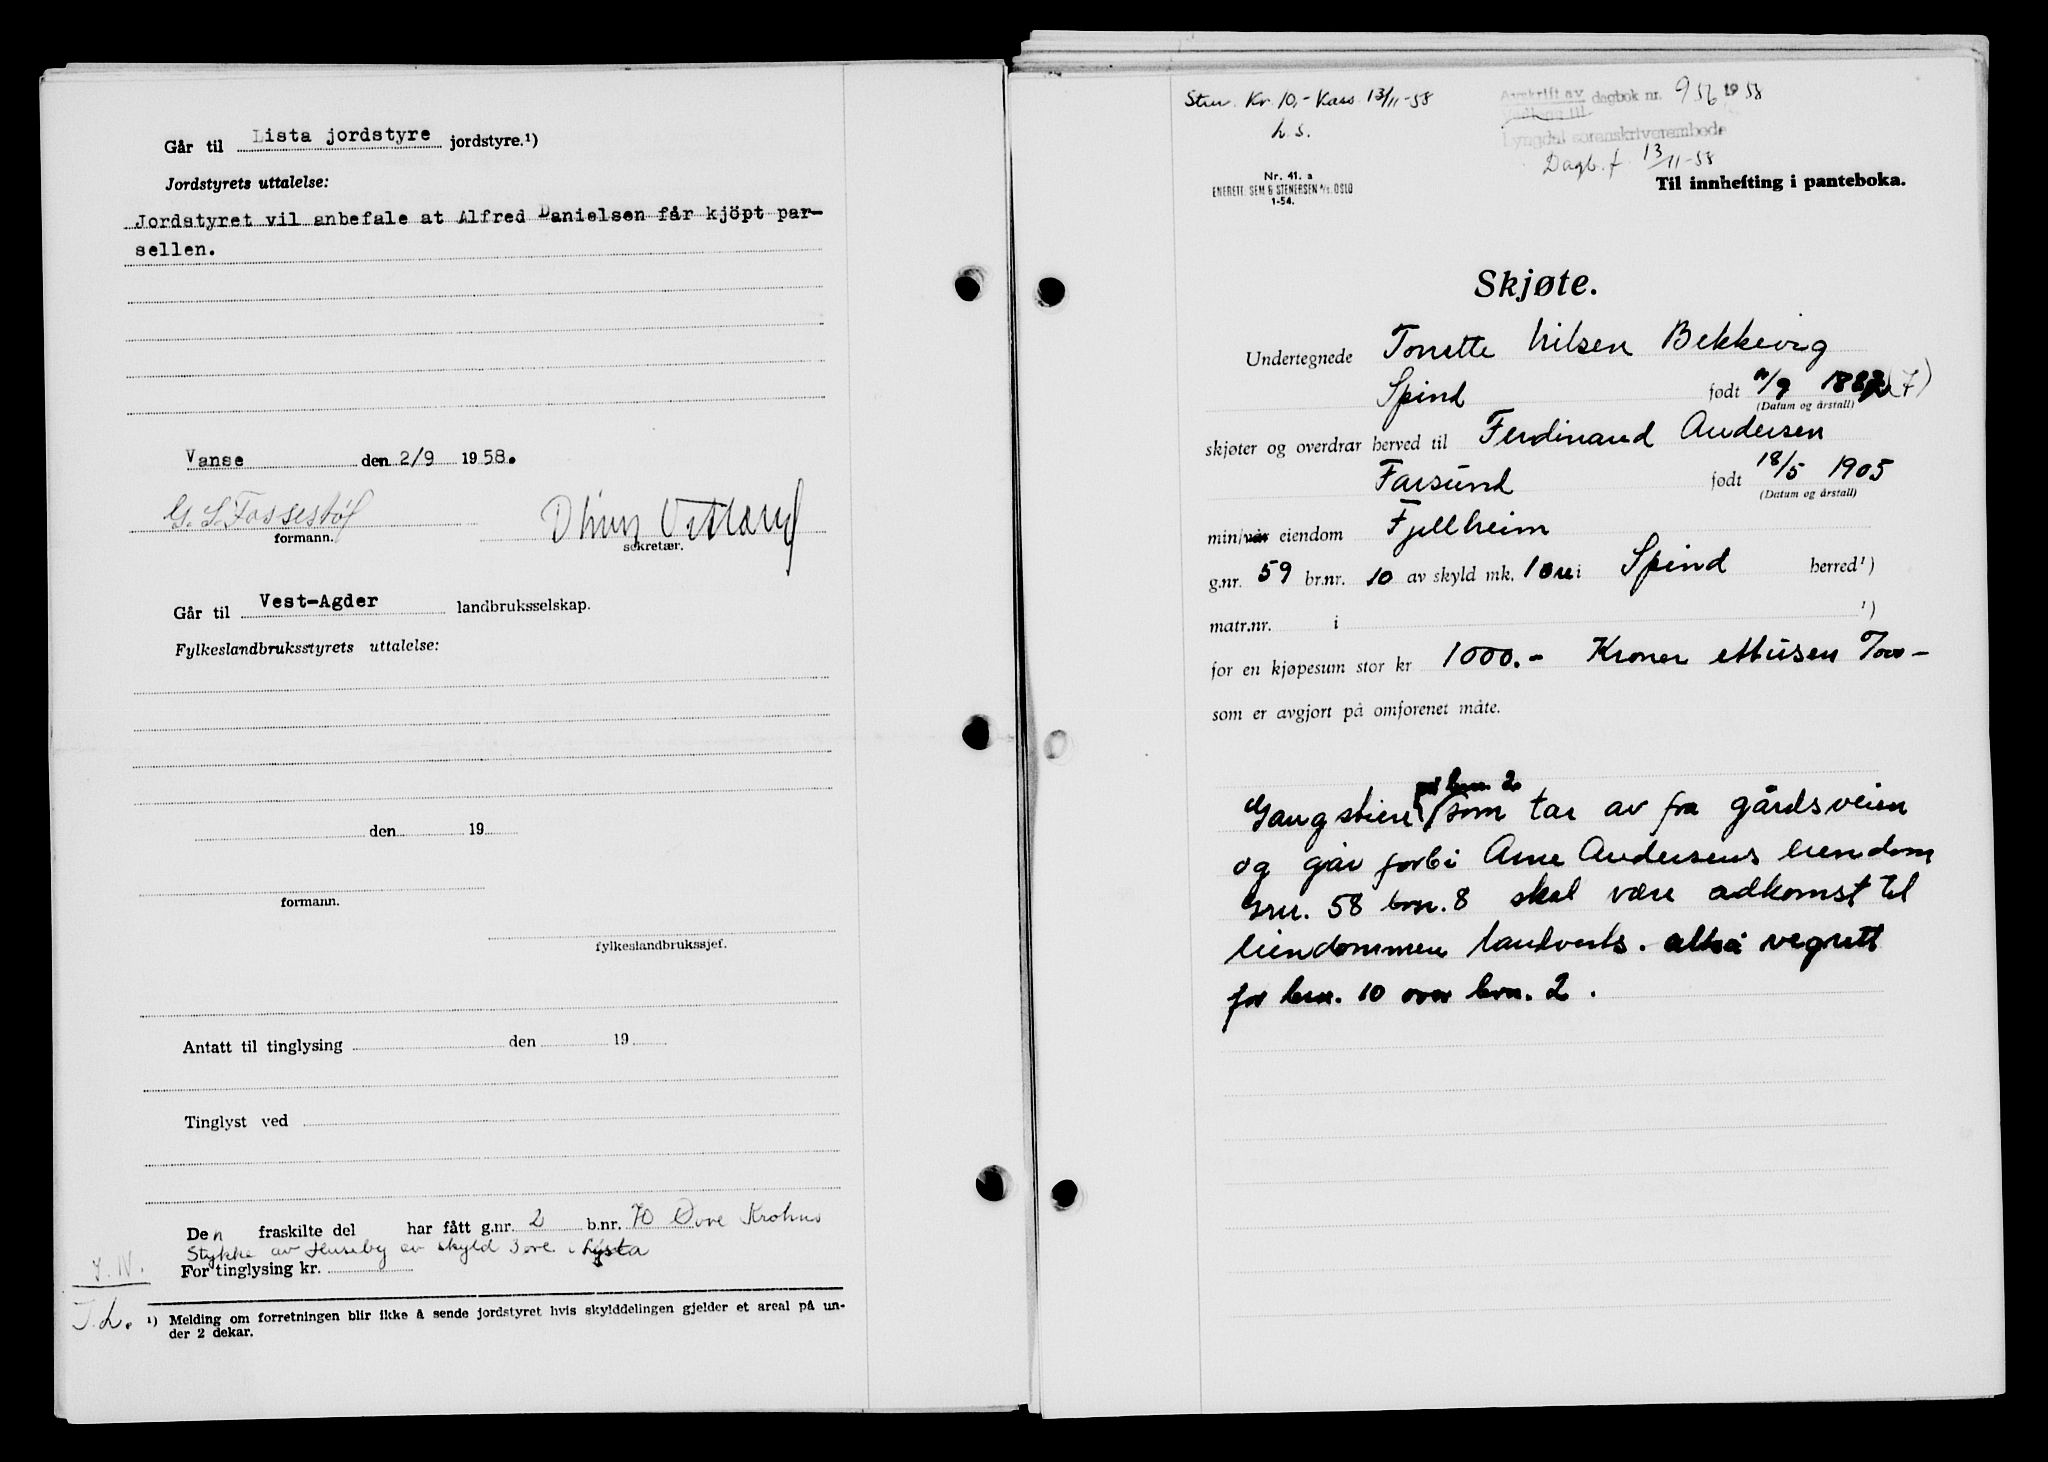 Går til Lista jordstyre jordstyre.¹)
Jordstyrets uttalelse:
Jordstyret vil anbefale at Alfred Danielsen får kjöpt par-
sellen.
Vanse den 2/9 1958.
G. S. Fossestøl
formann.
sekretær.
Går til Vest-Agder landbruksselskap.
Fylkeslandbruksstyrets uttalelse:
den 19
formann.
fylkeslandbrukssjef.
Antatt til tinglysing den 19
Tinglyst ved
Den fraskilte del har fått g.nr. 2 b.nr. 70 Øvre Krohns
Stykke av Huseby av skyld 3 øre i Lysta
For tinglysing kr.
J. L.
¹) Melding om forretningen blir ikke å sende jordstyret hvis skylddelingen gjelder et areal på un-
der 2 dekar.
Stm. Kr 10,- Kass 13/11-58
L. S.
Avskrift av dagbok nr. 956 1958
Lyngdal sorenskriverembede
Dagb. f. 13/11-58
Nr. 41. a
ENERETT: SEM & STENERSEN A/S. OSLO
1-54.
Til innhefting i panteboka.
Skjøte.
Undertegnede Tonette Nilsen Bekkevig
Spind født 11/9 1887 (7)
(Datum og årstall)
skjøter og overdrar herved til Ferdinand Andersen
Farsund født 18/5 1905
(Datum og årstall)
min/vår eiendom Fjellheim
g.nr. 59 br.nr. 10 av skyld mk. 1 øre i Spind herred¹)
matr.nr. i ¹)
for en kjøpesum stor kr 1000.- Kroner ettusen
som er avgjort på omforenet måte.
på brn. 2
Gangstien som tar av fra gårdsveien
og går forbi Arne Andersens eiendom
grn. 58 brn. 8 skal være adkomst til
eiendommen landverts. altså vegrett
for brn. 10 over brn. 2.